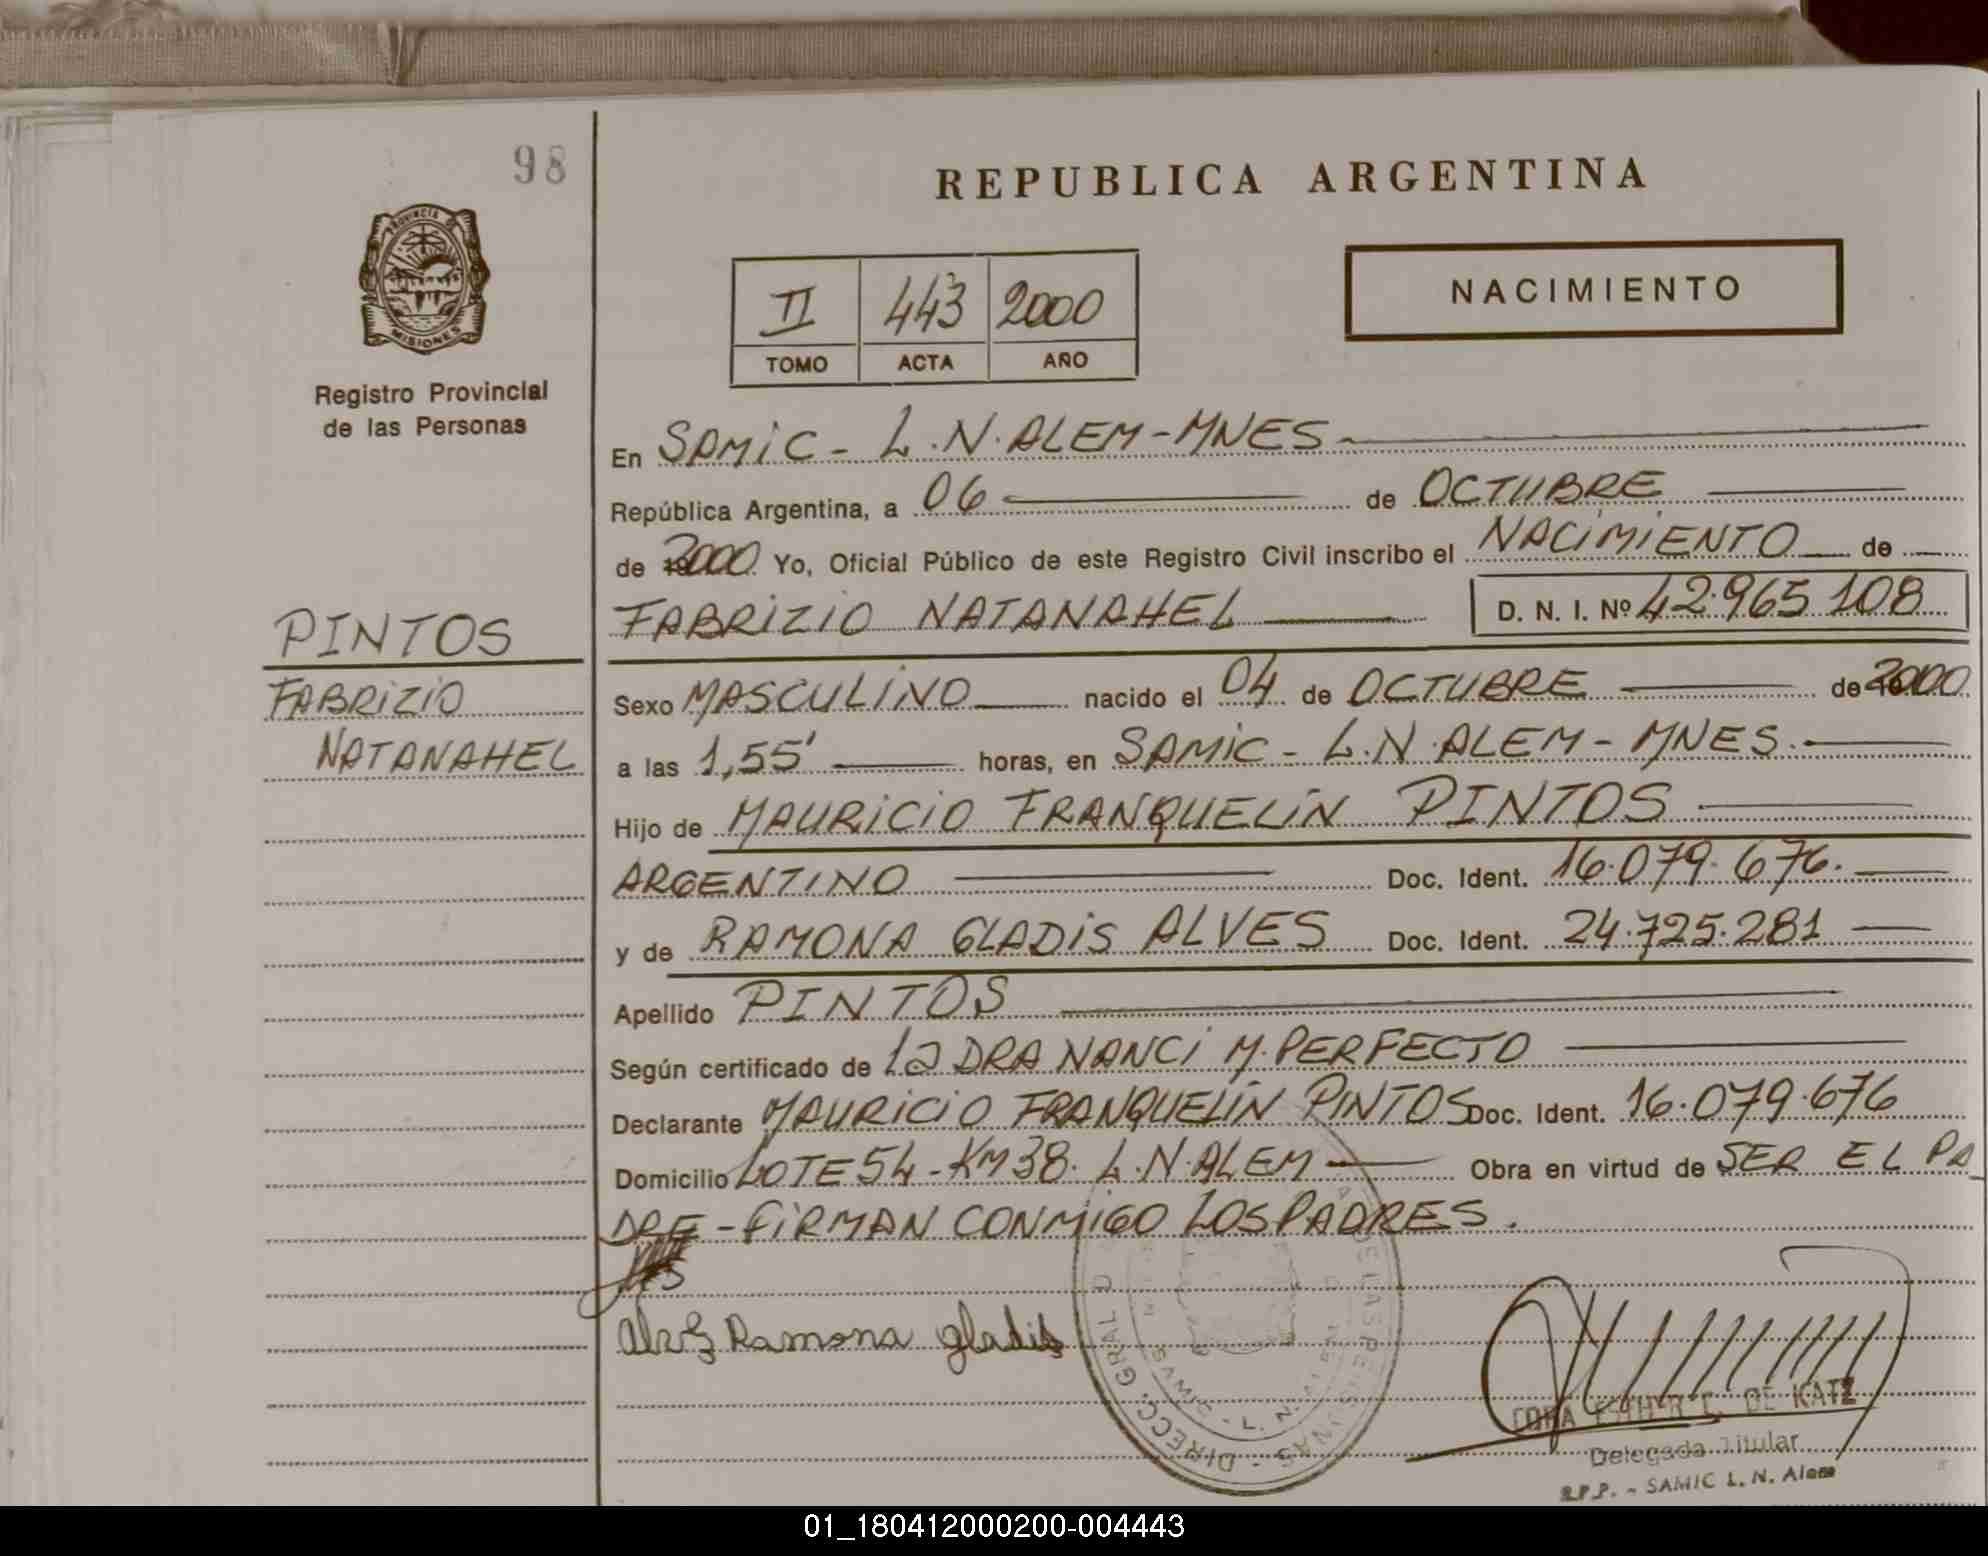 98
REPUBLICA ARGENTINA
PROVINCIA DE
MISIONES
Registro Provincial
de las Personas
II 443 2000
TOMO ACTA AÑO
NACIMIENTO
En SAMIC - L.N. ALEM - MNES
República Argentina, a 06 de OCTUBRE
de 2000 Yo, Oficial Público de este Registro Civil inscribo el NACIMIENTO de
FABRIZIO NATANAHEL D. N. I. Nº 42.965 108
PINTOS
FABRIZIO
NATANAHEL
Sexo MASCULINO nacido el 04 de OCTUBRE de 2000
a las 1,55' horas, en SAMIC - L.N. ALEM - MNES.
Hijo de MAURICIO FRANQUELIN PINTOS
ARGENTINO Doc. Ident. 16.079.676.
y de RAMONA GLADIS ALVES Doc. Ident. 24.725.281
Apellido PINTOS
Según certificado de la DRA NANCI M. PERFECTO
Declarante MAURICIO FRANQUELIN PINTOS Doc. Ident. 16.079.676
Domicilio LOTE 54 - KM 38. L.N. ALEM Obra en virtud de SER EL PA
DRE - FIRMAN CONMIGO LOS PADRES.
Ramona gladis
DIRECC. GRAL DE LAS PERSONAS
CORA ESTHER C. DE KATZ
Delegada Titular
R.P.P. - SAMIC L. N. Alem
01_180412000200-004443